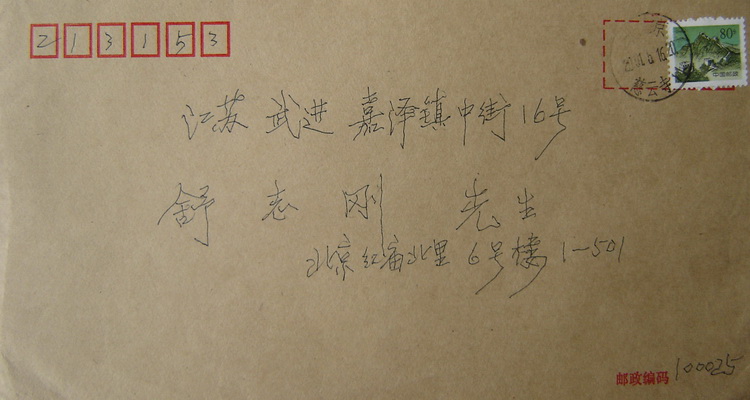 213153
80分
中国邮政
江苏 武进 嘉泽镇中街16号
舒志刚 先生
北京红庙北里 6号楼 1-501
邮政编码 100025